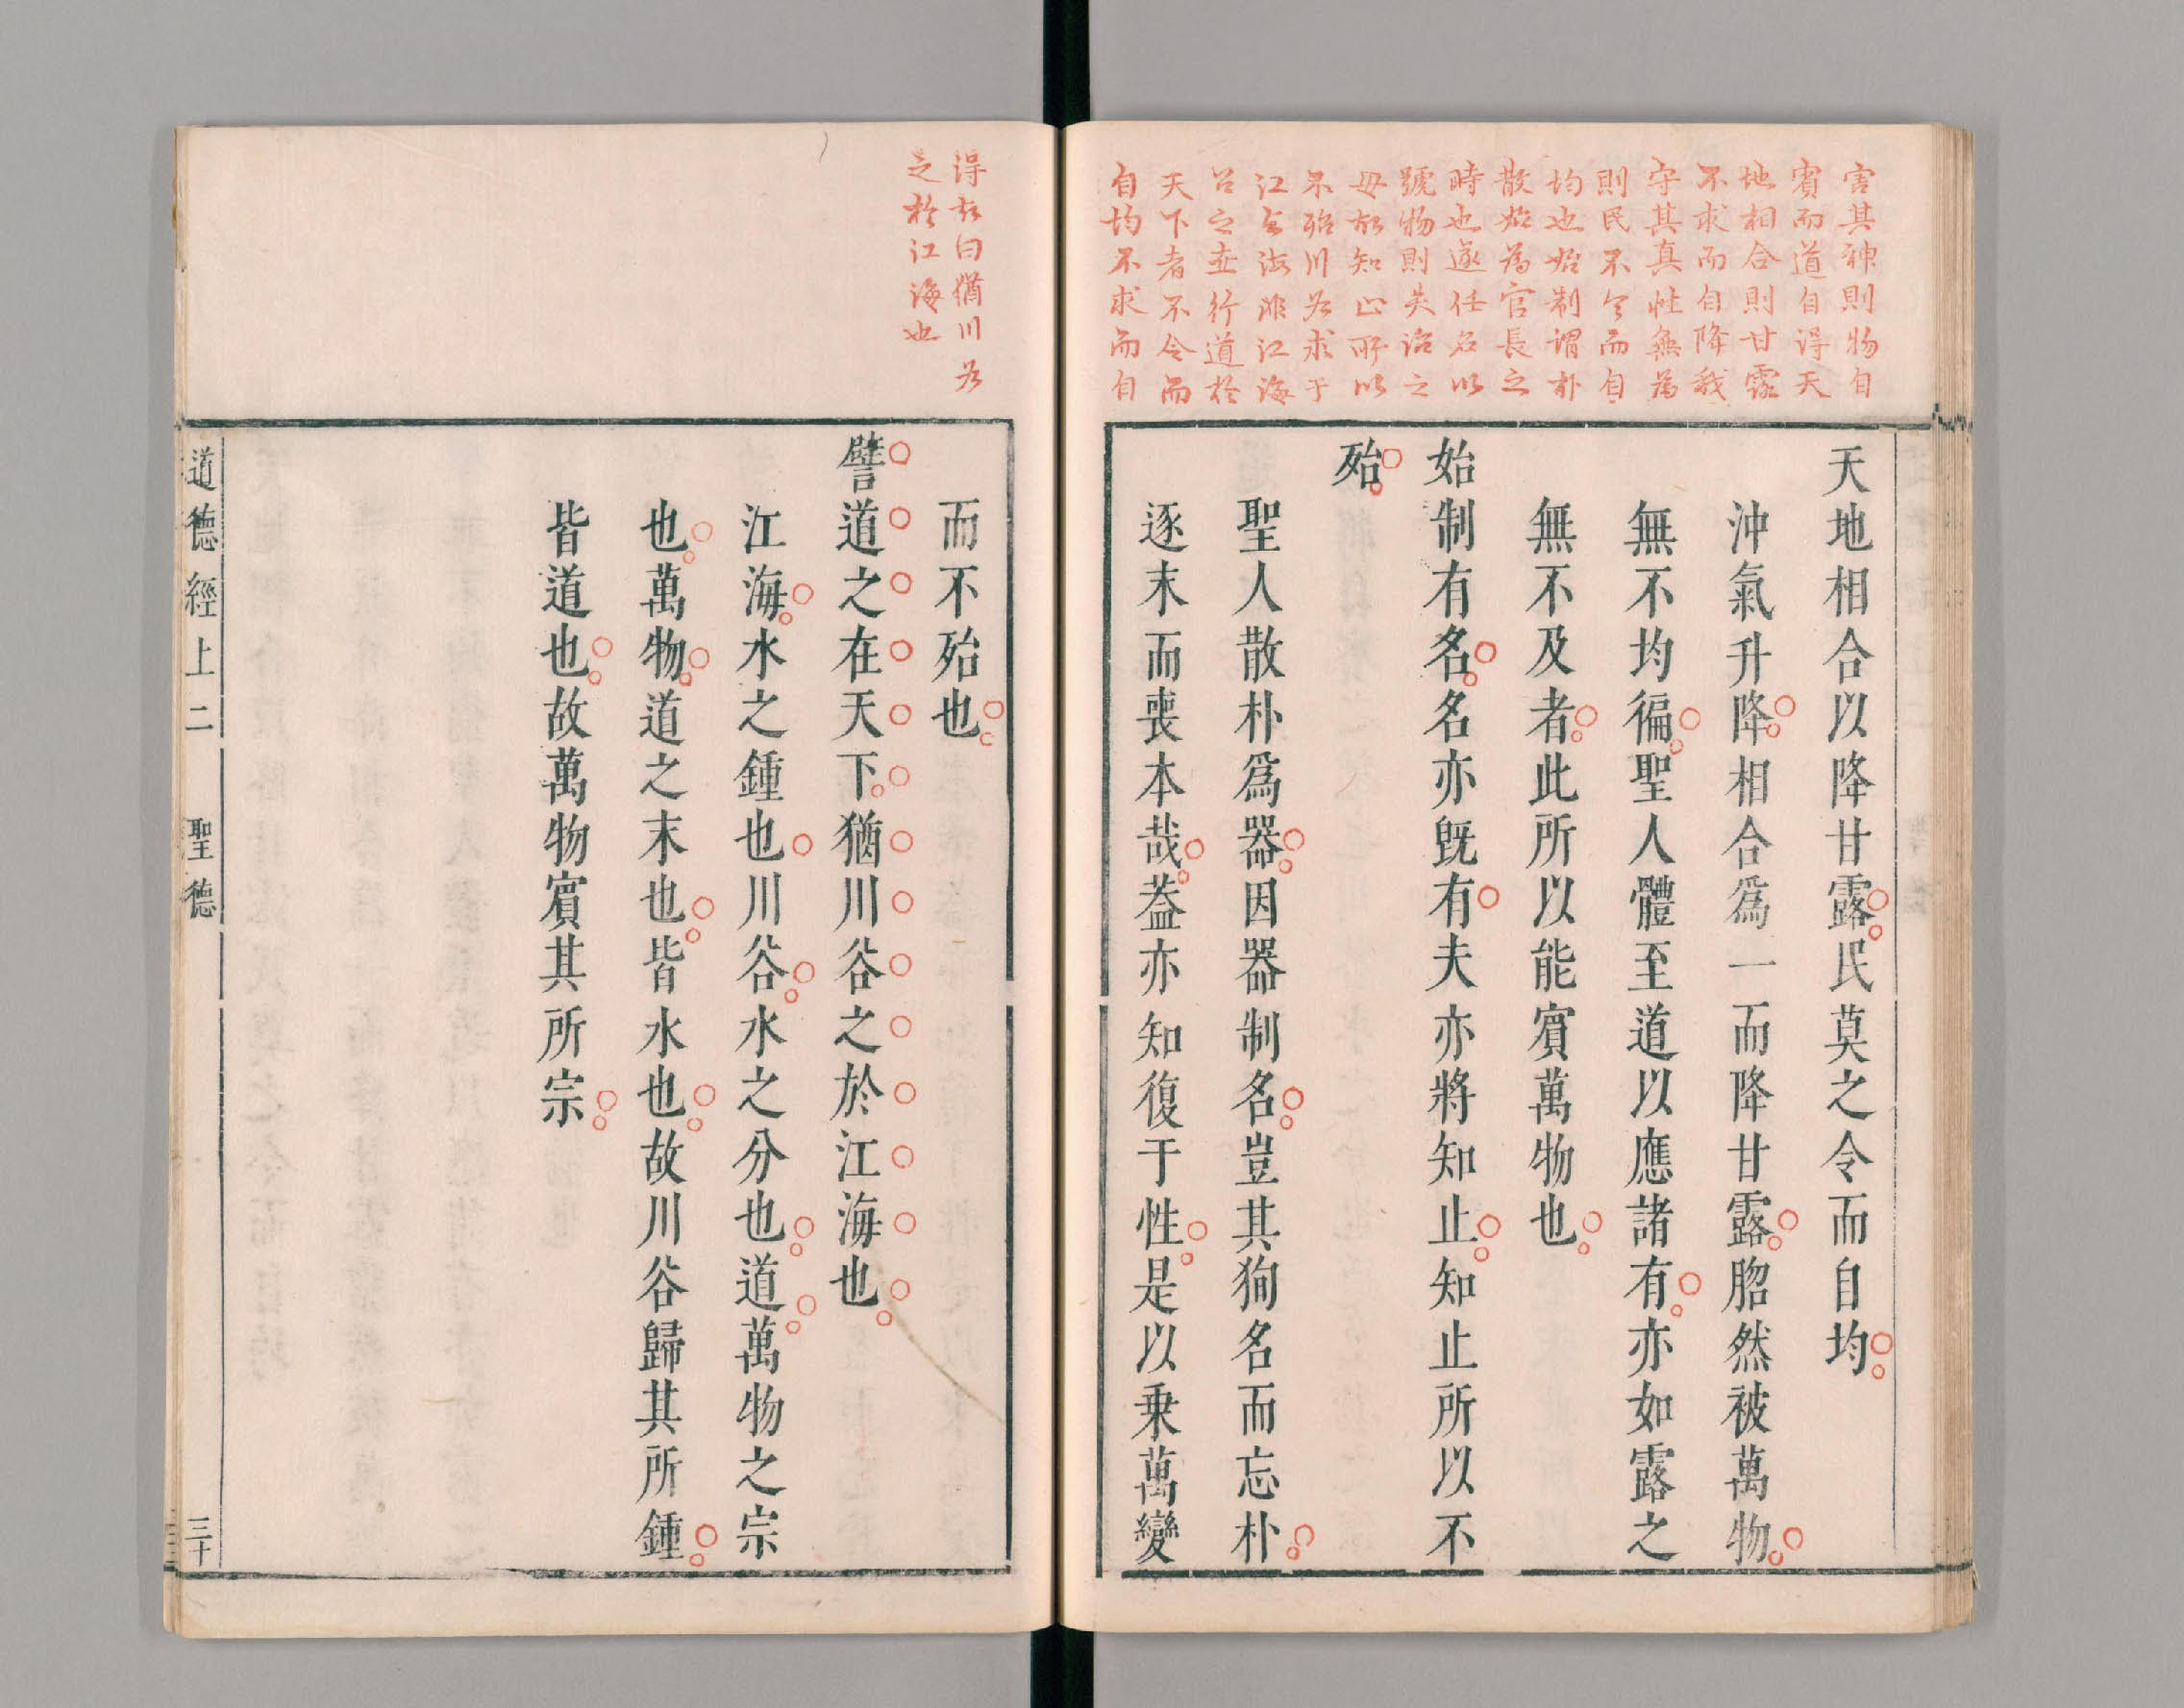 害其神則物自
賓而道自得天
地相合則甘露
不求而自降我
守其真性無為
則民不令而自
均也始制謂朴
散始為官長之
時也遂任名以
號物則失治之
母故知止所以
不殆川谷求于
江与海非江海
召之並行道於
天下者不令而
自均不求而自
天地相合以降甘露民莫之令而自均
沖氣升降相合爲一而降甘露脗然被萬物
無不均徧聖人體至道以應諸有亦如露之
無不及者此所以能賔萬物也
始制有名名亦旣有夫亦將知止知止所以不
殆
聖人散朴爲器因器制名豈其狥名而忘朴
逐末而喪本哉葢亦知復于性是以乗萬變
得故曰猶川谷
之於江海也
而不殆也
譬道之在天下猶川谷之於江海也
江海水之鍾也川谷水之分也道萬物之宗
也萬物道之末也皆水也故川谷歸其所鍾
皆道也故萬物賔其所宗
道德經上二 聖德 三十